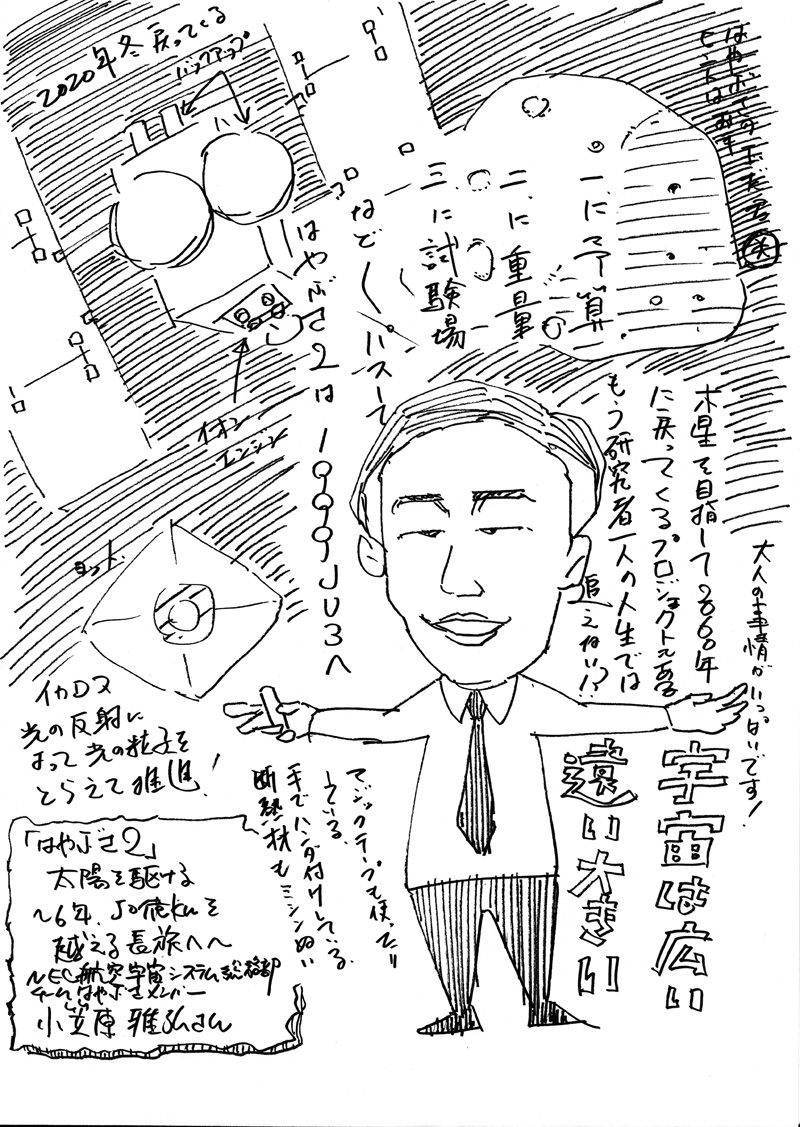 2020年冬戻ってくる
バックアップ
一に予算
二に重量
三に試験場
などをパスして
はやぶさ2は1999JU3へ
イオン
エンジン
木星を目指して2060年
に戻ってくるプロジェクトもある
もう研究者一人の人生では
追えない!?
大人の事情がいっぱいです!
宇宙は広い
遠い大きい
ヨット
イカロス
光の反射に
よって光の粒子を
とらえて推進!
マジックテープも使ったり
している。
手でハンダ付けしている。
断熱材もミシンぬい
「はやぶさ2」
太陽を駆ける
〜6年、50億kmを
越える長旅へ〜
NEC航空宇宙システム
チームはやぶさメンバー
小笠原雅弘さん